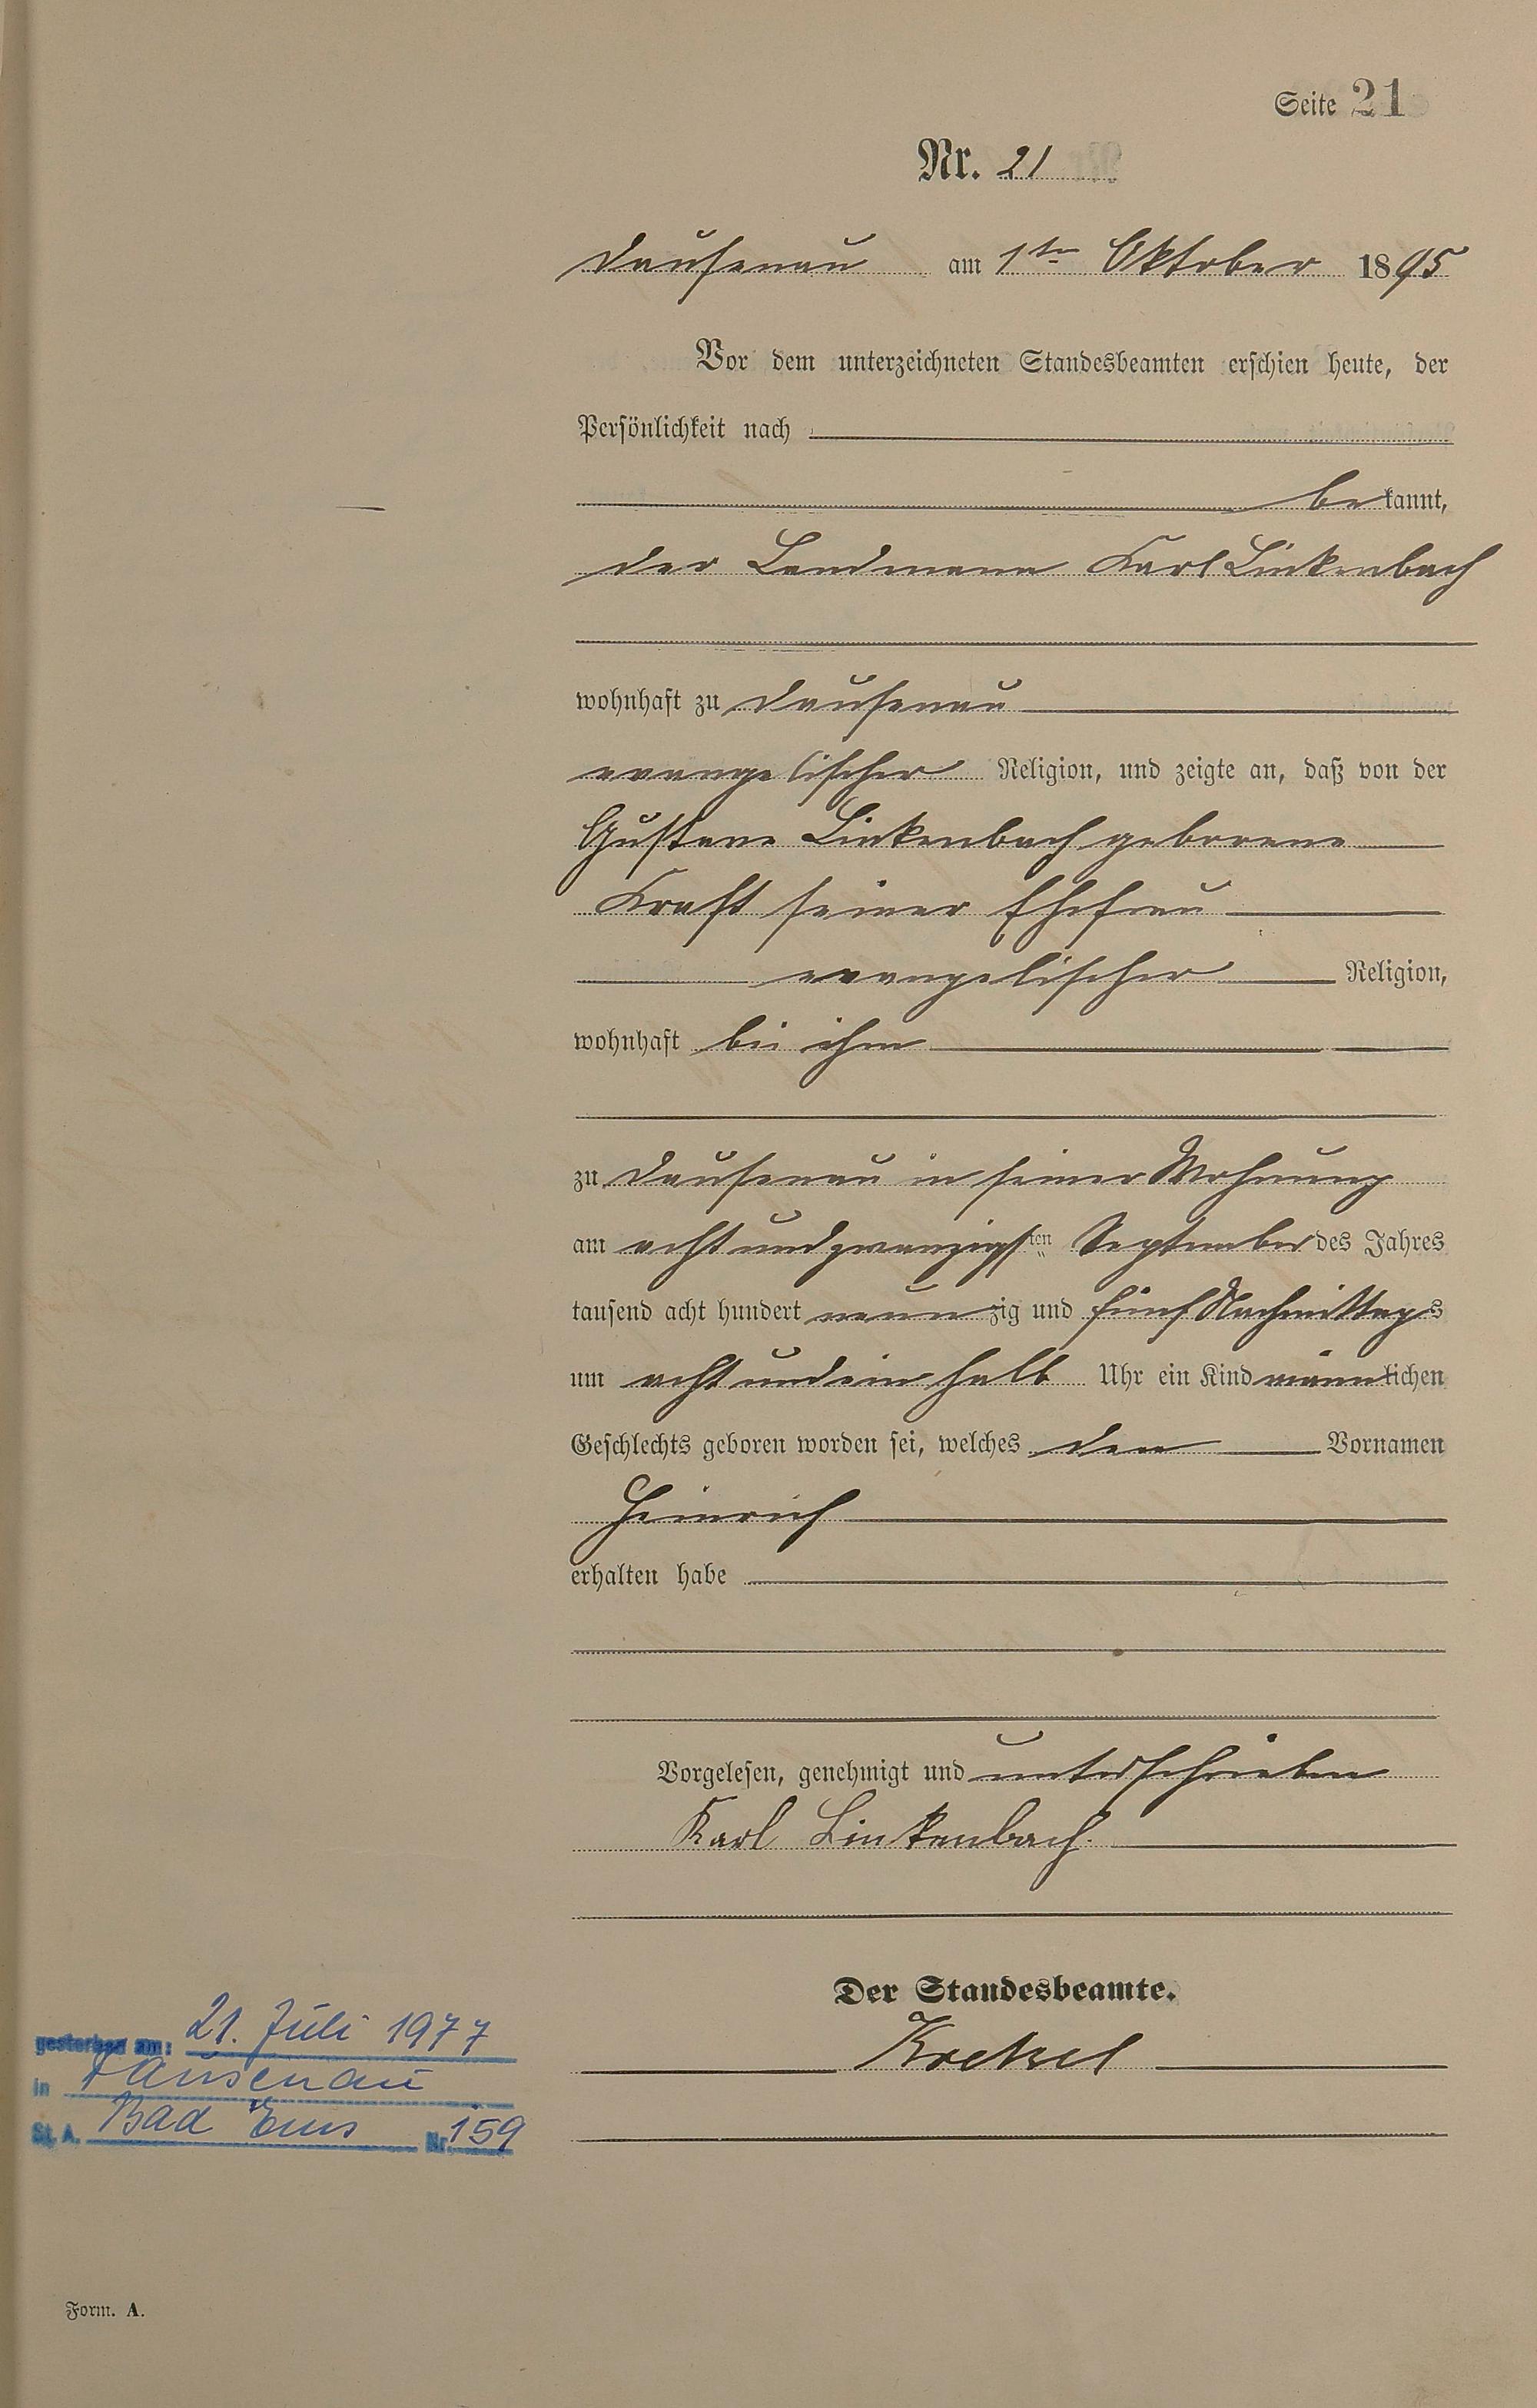 Seite 21
Nr. 21
Dausenau am 1ten Oktober 1895
Vor dem unterzeichneten Standesbeamten erschien heute, der
Persönlichkeit nach
bekannt,
der Landmann Karl Linkenbach
wohnhaft zu Dausenau
evangelischer Religion, und zeigte an, daß von der
Gustave Linkenbach geborene
Kraft seiner Ehefrau
evangelischer Religion,
wohnhaft bei ihm
zu Dausenau in seiner Wohnung
am acht und zwanzigsten September des Jahres
tausend acht hundert neunzig und fünf Nachmittags
um acht und ein halb Uhr ein Kind männlichen
Geschlechts geboren worden sei, welches den Vornamen
Heinrich
erhalten habe
Vorgelesen, genehmigt und unterschrieben
Karl Linkenbach.
Der Standesbeamte.
gestorben am: 21. Juli 1977
in Dausenau
St. A. Bad Ems Nr. 159
Form. A.